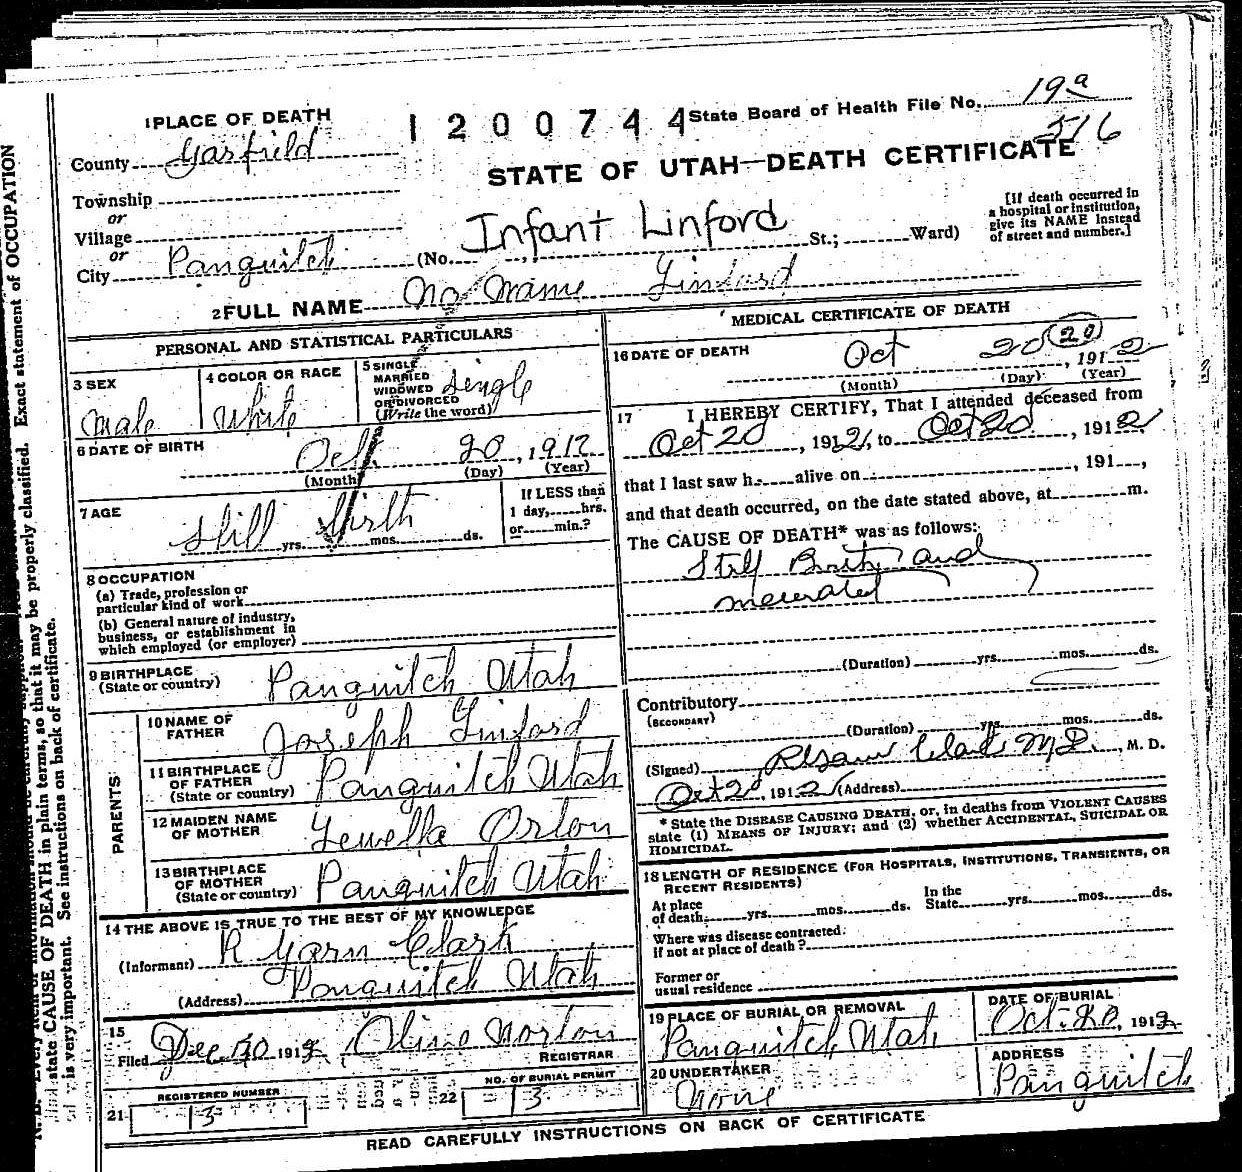 1 PLACE OF DEATH
1200744
State Board of Health File No. 19a
516
County Garfield
STATE OF UTAH—DEATH CERTIFICATE
Township
or
Village
or
City Panguitch (No. St.; Ward)
Infant Linford
[If death occurred in
a hospital or institution,
give its NAME instead
of street and number.]
2 FULL NAME No Name Linford
PERSONAL AND STATISTICAL PARTICULARS
3 SEX
Male
4 COLOR OR RACE
White
5 SINGLE
MARRIED
WIDOWED
OR DIVORCED
(Write the word)
Single
6 DATE OF BIRTH
Oct. 20, 1912
(Month) (Day) (Year)
7 AGE
Still Birth
yrs. mos. ds.
If LESS than
1 day, hrs.
or min.?
8 OCCUPATION
(a) Trade, profession or
particular kind of work
(b) General nature of industry,
business, or establishment in
which employed (or employer)
9 BIRTHPLACE
(State or country)
Panguitch Utah
PARENTS
10 NAME OF
FATHER
Joseph Linford
11 BIRTHPLACE
OF FATHER
(State or country)
Panguitch Utah
12 MAIDEN NAME
OF MOTHER
Lewella Orton
13 BIRTHPLACE
OF MOTHER
(State or country)
Panguitch Utah
14 THE ABOVE IS TRUE TO THE BEST OF MY KNOWLEDGE
(Informant) R Garn Clark
(Address) Panguitch Utah
15
Filed Dec 1912 Norton
REGISTRAR
REGISTERED NUMBER
21 13
NO. OF BURIAL PERMIT
22 13
MEDICAL CERTIFICATE OF DEATH
16 DATE OF DEATH
Oct 20 (20), 1912
(Month) (Day) (Year)
17 I HEREBY CERTIFY, That I attended deceased from
Oct 20, 1912, to Oct 20, 1912,
that I last saw h alive on , 191 ,
and that death occurred, on the date stated above, at m.
The CAUSE OF DEATH* was as follows:
Still Birth and
macerated
(Duration) yrs. mos. ds.
Contributory
(SECONDARY)
(Duration) yrs. mos. ds.
(Signed) Clark M.D., M. D.
Oct 20, 1912 (Address)
* State the DISEASE CAUSING DEATH, or, in deaths from VIOLENT CAUSES
state (1) MEANS OF INJURY; and (2) whether ACCIDENTAL, SUICIDAL OR
HOMICIDAL.
18 LENGTH OF RESIDENCE (FOR HOSPITALS, INSTITUTIONS, TRANSIENTS, OR
RECENT RESIDENTS)
At place
of death: yrs. mos. ds.
In the
State yrs. mos. ds.
Where was disease contracted,
if not at place of death?
Former or
usual residence
19 PLACE OF BURIAL OR REMOVAL
Panguitch, Utah
DATE OF BURIAL
Oct. 20, 1912
20 UNDERTAKER
None
ADDRESS
Panguitch
READ CAREFULLY INSTRUCTIONS ON BACK OF CERTIFICATE
state CAUSE OF DEATH in plain terms, so that it may be properly classified. Exact statement of OCCUPATION
is very important. See instructions on back of certificate.